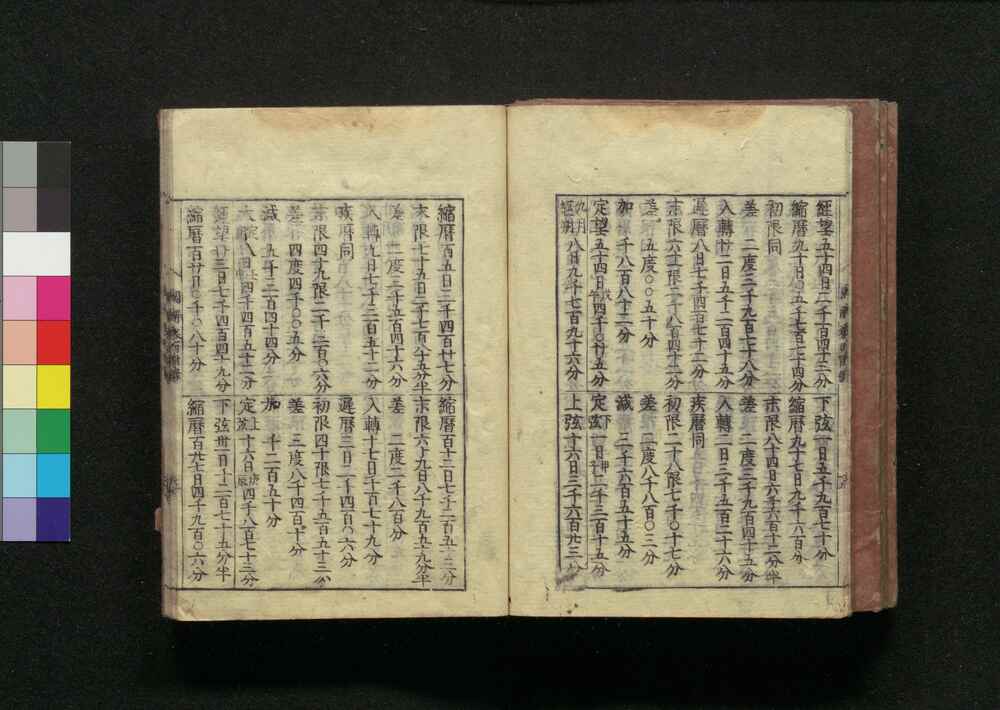 経望五十四日二千百四十三分
縮暦九十日〇五千七百七十四分
初限同
差 二度三千九百七十八分
入轉廿二日五千二百四十五分
遲暦八日七千四百七十二分
末限六十限二千八百四十二分
差 五度〇〇五十分
加 千八百八十二分
定望五十四日 四千〇廿五分
九月
経朔 八日九千七百九十六分
下弦一日五千九百七十分
縮暦九十七日九千六百分
末限八十四日六千六百十二分半
差 二度三千九百四十五分
入轉二日三千五百二十六分
疾暦同
初限二十八限七千〇十七分
差 二度八千八百〇三分
減 三千六百五十五分
定 下弦 一日 二千三百十五分
上弦十六日三千六百九三分
縮暦百五日三千四百廿七分
末限七十五日二千七百八十五分半
差 二度三千五百四十六分
入轉九日七千二百五十二分
疾暦同
末限四十九限二千二百〇六分
差 四度四千〇〇五分
減 五千二百四十四分
八日 四千四百五十二分
経望廿三日七千四百四十九分
縮暦百廿日 千〇八十分
縮暦百十三日七千二百五十三分
末限六十九日八千九百五十九分半
差 二度二千八百分
入轉十七日千百七十九分
遲暦三日二千四百〇六分
初限四十限七千五百五十三分
差 三度八千四百十分
加 千二百五十分
定 上弦 十六日 四千八百七十三分
下弦卅一日千二百七十五分半
縮暦百廿七日四千九百〇六分